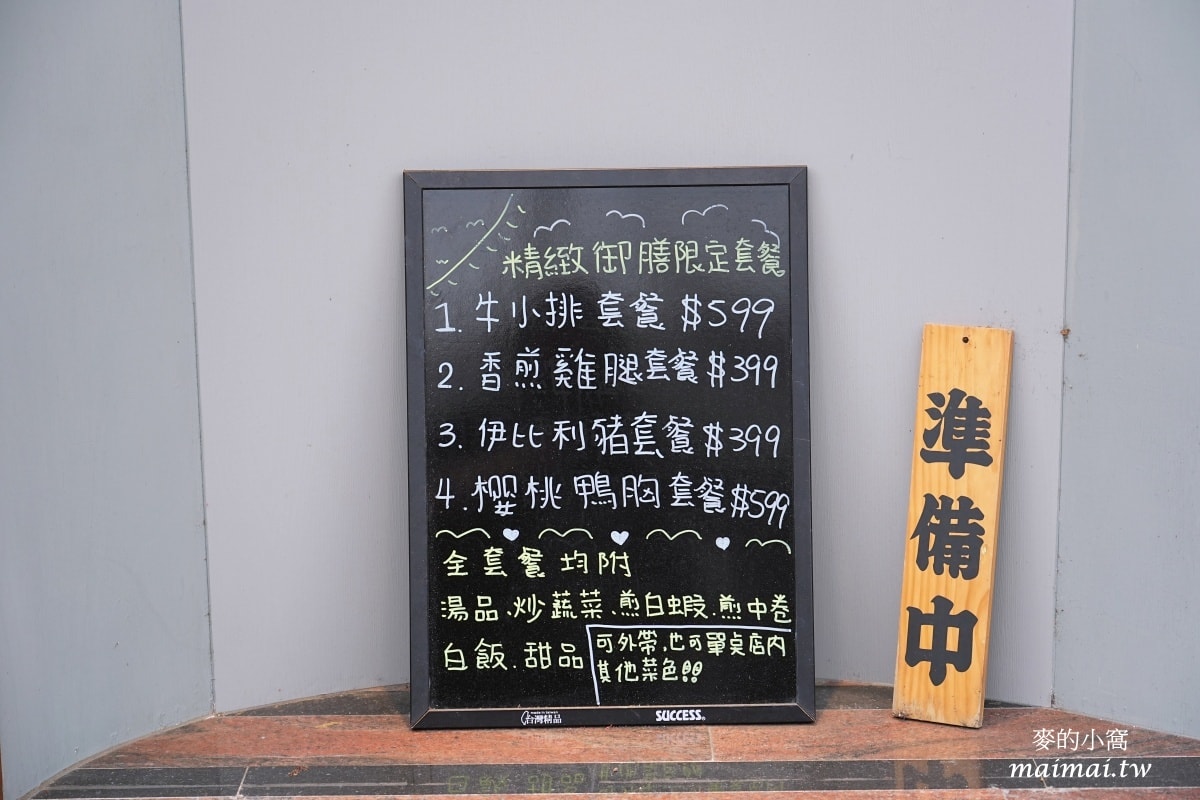 精緻御膳限定套餐
1. 牛小排套餐 $599
2. 香煎雞腿套餐 $399
3. 伊比利豬套餐 $399
4. 櫻桃鴨胸套餐 $599
全套餐均附
湯品、炒蔬菜、煎白蝦、煎中卷
白飯、甜品
可外帶，也可單桌店內
其他菜色!!
made in taiwan
台灣精品
SUCCESS
準備中
麥的小窩
maimai.tw